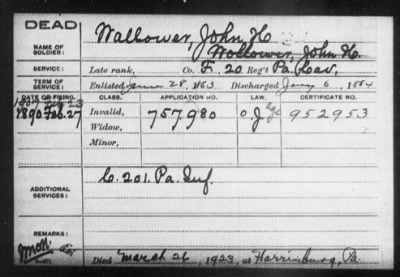 DEAD
Wallower, John H
NAME OF SOLDIER: Wollower, John H.
SERVICE: Late rank, Co. F. 20 Reg't Pa. Cav.
TERM OF SERVICE: Enlisted June 28, 1863 Discharged Jany 6, 1864
DATE OF FILING. CLASS. APPLICATION NO. LAW. CERTIFICATE NO.
1890 Feb. 27 Invalid, 757,980 952953
Widow,
Minor,
ADDITIONAL SERVICES: C. 201. Pa. Inf.
REMARKS:
Died March 26, 1923, at Harrisburg, Pa.